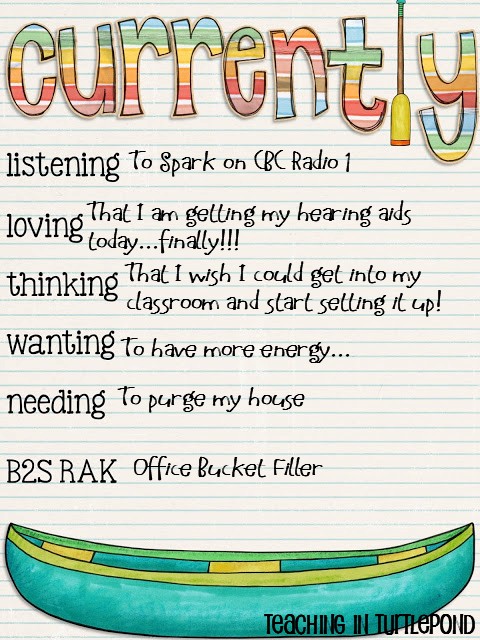 currently
listening To Spark on CBC Radio 1
loving That I am getting my hearing aids
today...finally!!!
thinking That I wish I could get into my
classroom and start setting it up!
wanting To have more energy...
needing To purge my house
B2S RAK Office Bucket Filler
TEACHING IN TURTLEPOND